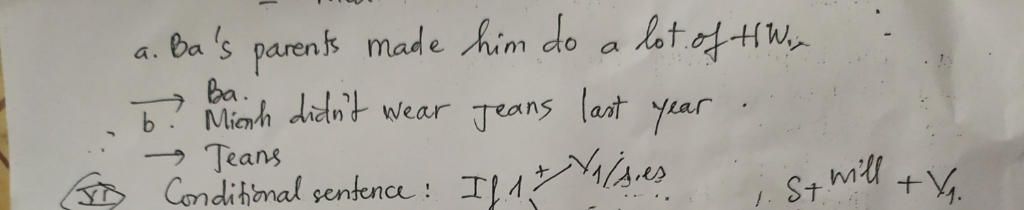 a. Ba's parents made him do a lot of HW.
→ Ba.
b. Mienh didn't wear Jeans last year.
→ Jeans
VI Conditional sentence: If 1 + V1/s.es , S + will + V1.